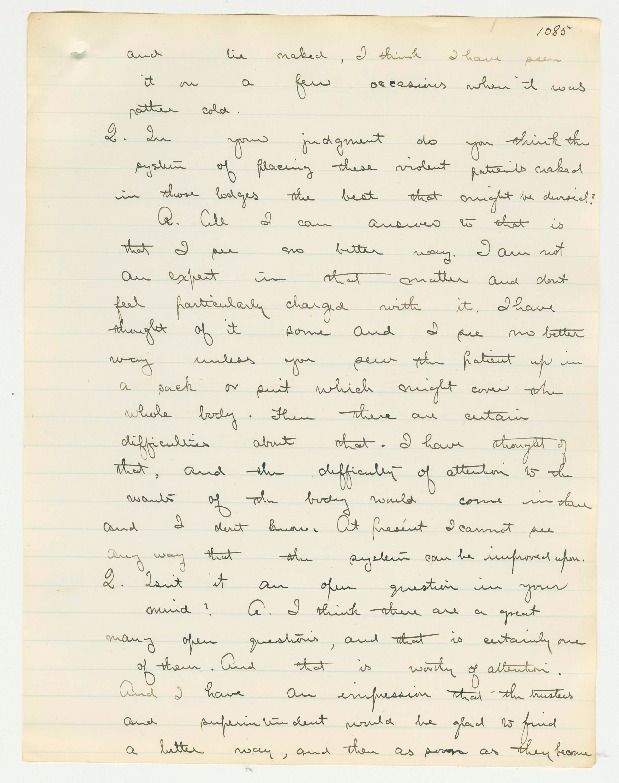 1085
and lie naked, I think I have seen
it on a few occasions when it was
rather cold.
Q. In your judgment do you think the
system of placing these violent patients naked
in those lodges the best that might be devised?
A. All I can answer to that is
that I see no better way. I am not
an expert in that matter and dont
feel particularly charged with it. I have
thought of it some and I see no better
way unless you sew the patient up in
a sack or suit which might cover the
whole body. Then there are certain
difficulties about that. I have thought of
that, and the difficulty of attention to the
wants of the body would come in there
and I dont know. At present I cannot see
any way that the system can be improved upon.
Q. Isnt it an open question in your
mind? A. I think there are a great
many open questions, and that is certainly one
of them. And that is worthy of attention.
And I have an impression that the trustees
and superintendent would be glad to find
a better way, and then as soon as they become